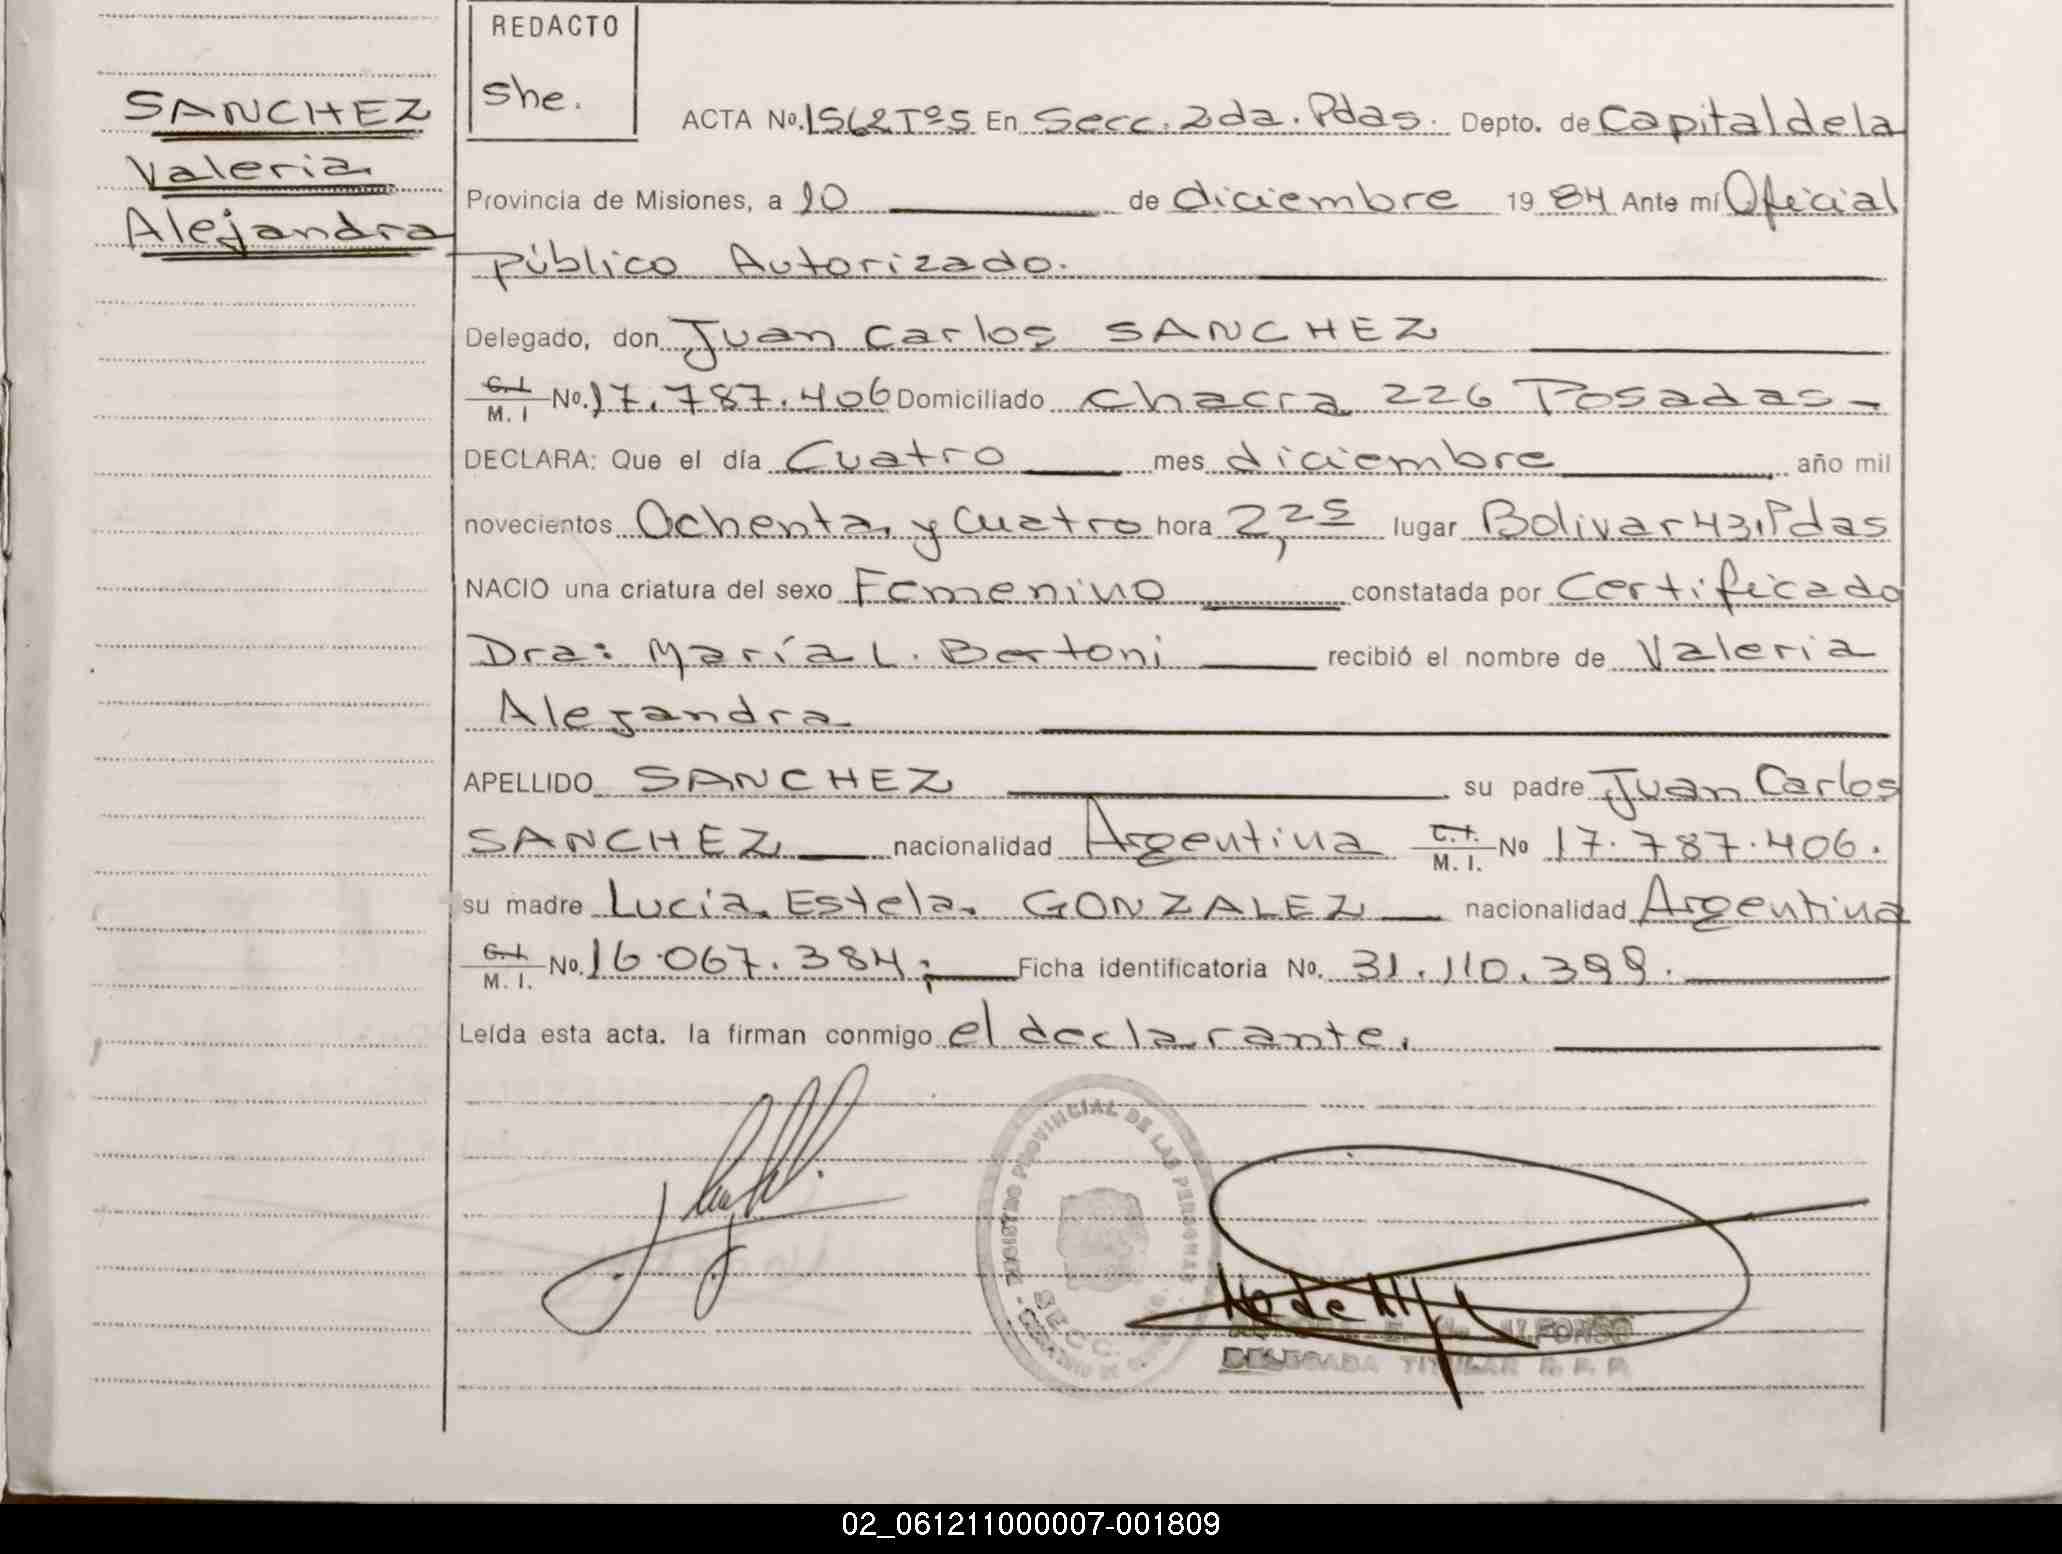 REDACTO
She.
SANCHEZ
Valeria
Alejandra
ACTA No. 1562 Tº5 En Secc. 2da. Pdas. Depto. de Capital de la
Provincia de Misiones, a 10 de diciembre 1984 Ante mí Oficial
Público Autorizado.
Delegado, don Juan Carlos SANCHEZ
C.I. M. I No. 17.787.406 Domiciliado Chacra 226 Posadas-
DECLARA: Que el día Cuatro mes diciembre año mil
novecientos Ochenta y Cuatro hora 2,25 lugar Bolivar 43, Pdas
NACIO una criatura del sexo Femenino constatada por Certificado
Dra: María L. Bertoni recibió el nombre de Valeria
Alejandra
APELLIDO SANCHEZ su padre Juan Carlos
SANCHEZ nacionalidad Argentina C.I. M. I. No 17.787.406.
su madre Lucía Estela GONZALEZ nacionalidad Argentina
C.I. M. I. No. 16.067.384; Ficha identificatoria No. 31.110.399.
Leída esta acta. la firman conmigo el declarante.
REGISTRO PROVINCIAL DE LAS PERSONAS
SECC.
E. de ALFONSO
DELEGADA TITULAR R. P. P.
02_061211000007-001809